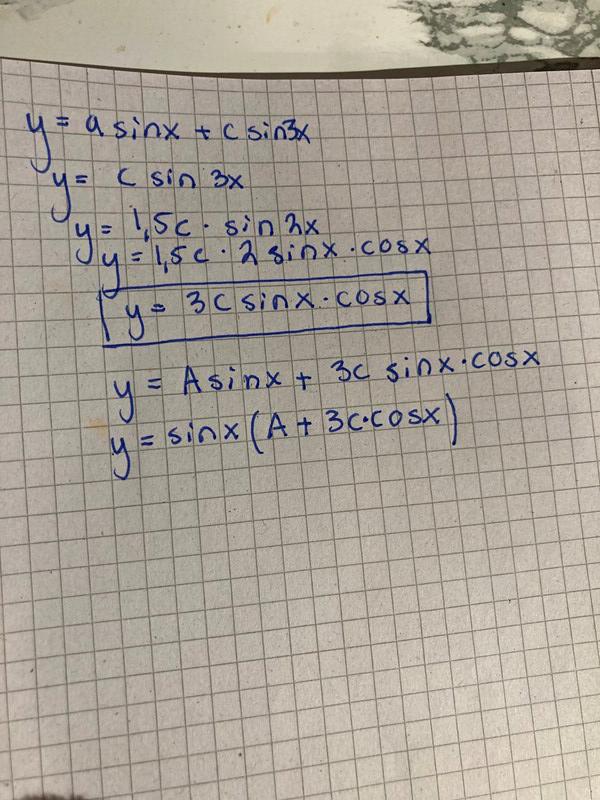 y = a sinx + c sin3x
y = c sin 3x
y = 1,5c · sin 2x
y = 1,5c · 2 sinx · cosx
y = 3c sinx · cosx
y = A sinx + 3c sinx · cosx
y = sinx (A + 3c·cosx)